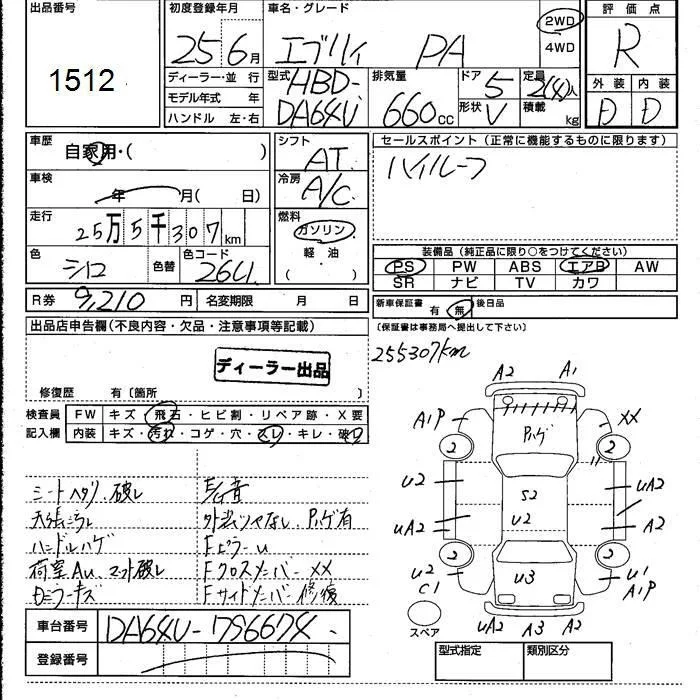 出品番号 1512
初度登録年月 25 6月
車名・グレード エブリィ PA 2WD 4WD
評価点 R
ディーラー・並行
モデル年式 年
ハンドル 左・右
型式 HBD-DA64V
排気量 660cc
ドア 5
形状 V
定員 2(4)人
積載 kg
外装 D 内装 D
車歴 自家用・( )
シフト AT
セールスポイント (正常に機能するものに限ります)
ハイルーフ
車検 年 月( 日)
冷房 A/C
走行 25万5千307km
燃料 ガソリン 軽油 ( ・ )
色 シロ 色替
色コード 26U
装備品 (純正品に限り○をつけてください)
PS PW ABS エアB AW
SR ナビ TV カワ
R券 9,210円 名変期限 月 日
新車保証書 有 無 後日品
(保証書は事務局へ提出して下さい)
出品店申告欄(不良内容・欠品・注意事項等記載)
255307km
ディーラー出品
修復歴 有〔箇所 〕
検査員記入欄
FW キズ・飛石・ヒビ割・リペア跡・X要
内装 キズ・汚れ・コゲ・穴・スレ・キレ・破れ
シートヘタリ、破レ E/G音
天張汚レ 外装ツヤなし Pハゲ有
ハンドルハゲ FピラーU
荷室AU マット破レ Fクロスメンバー XX
Dミラーキズ Fサイドメンバー修復
A2 A1
A1P XX
Pハゲ
2 2
U2 S2 UA2
U2
UA2 A2
2 2
U2 U3 U1
C1 A1P
UA2 A3 A2
スペア
車台番号 DA64V-796674
登録番号
型式指定 類別区分